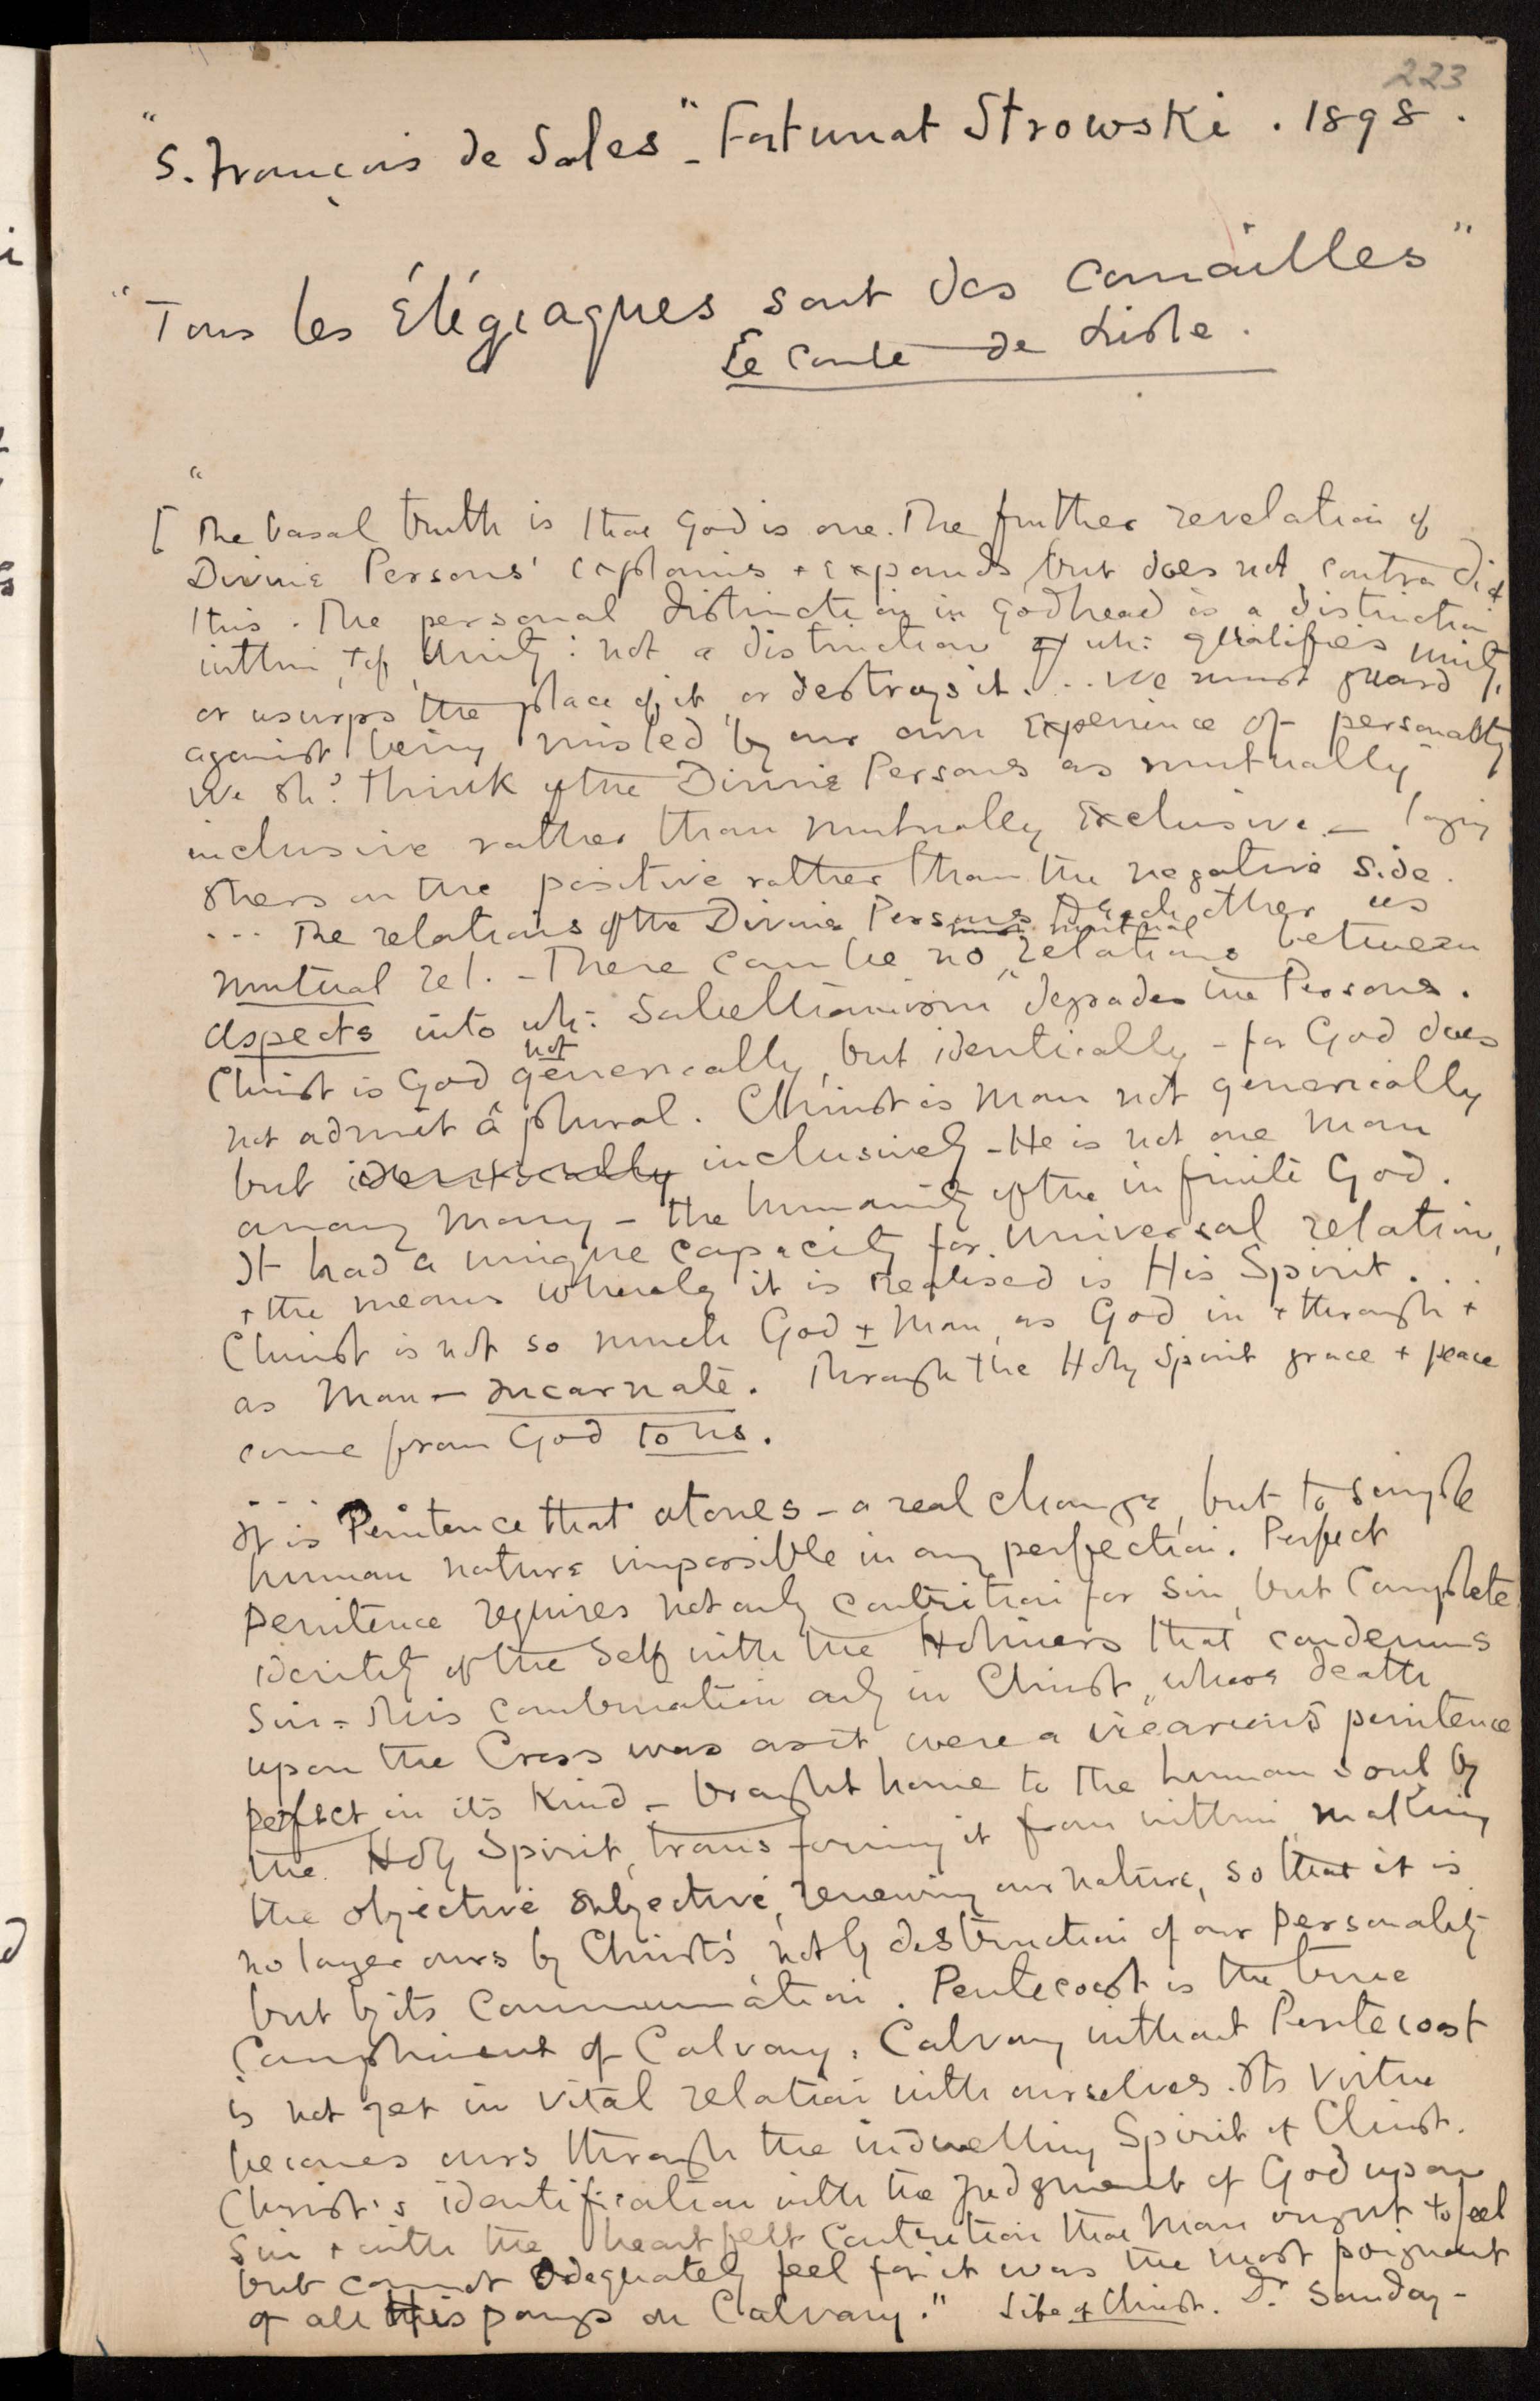 223
"S. François de Sales" - Fortunat Strowski . 1898 .
"Tous les Élégiaques sont des canailles"
Le Conte de Lisle .
"
[ The basal truth is that God is one. The further revelation of
Divine Persons' explains + expands, but does not contradict
this. The personal distinction in Godhead is a distinction
within, + of, Unity : not a distinction wh: qualifies unity,
or usurps the place of it, or destroys it. ... We must guard
against being misled by our own experience of personality
We shd think of the Divine Persons as mutually
inclusive rather than mutually exclusive - laying
stress on the positive rather than the negative side.
... The relations of the Divine Persons to each other is
mutual rel. - There can be no mutual relations between
aspects into wh: Sabellianism degrades the Persons.
Christ is God not generically, but identically - for God does
not admit a plural. Christ is Man not generically
but identically inclusively - He is not one man
among many - the humanity of the infinite God.
It had a unique capacity for universal relation,
+ the means whereby it is realised is His Spirit. ...
Christ is not so much God + Man, as God in + through +
as Man - incarnate. Through the Holy Spirit grace + peace
come from God to us.
... It is Penitence that atones - a real change, but to simple
human nature impossible in any perfection. Perfect
penitence requires not only contrition for sin, but complete
identity of the Self with the Holiness that condemns
sin - This combination only in Christ, whose death
upon the Cross was as it were a vicarious penitence
perfect in its kind - brought home to the human soul by
the Holy Spirit, transforming it from within, making
the objective subjective, renewing our nature, so that it is
no longer ours by Christ's not by destruction of our personality
but by its consummation. Pentecost is the true
Compliment of Calvary. Calvary without Pentecost
is not yet in vital relation with ourselves. Its virtue
becomes ours through the indwelling Spirit of Christ.
Christ's identification with the judgment of God upon
sin + with the heartfelt contrition that Man ought to feel
but cannot adequately feel for it was the most poignant
of all His pangs on Calvary." Life of Christ. Dr Sanday -